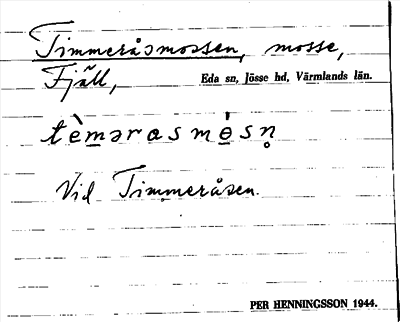 Timmeråsmossen, mosse,
Fjäll, Eda sn, Jösse hd, Värmlands län.
tèmərɑsmósn̥
Vid Timmeråsen.
PER HENNINGSSON 1944.